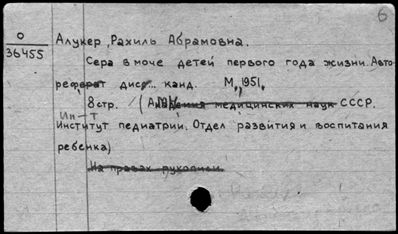 6
О
36455
Алукер, Рахиль Абрамовна.
Сера в моче детей первого года жизни. Авто-
реферат дис... канд. М., 1951.
8 стр. (АМН Академия медицинских наук СССР.
Ин-т
Институт педиатрии. Отдел развития и воспитания
ребенка)
На правах рукописи